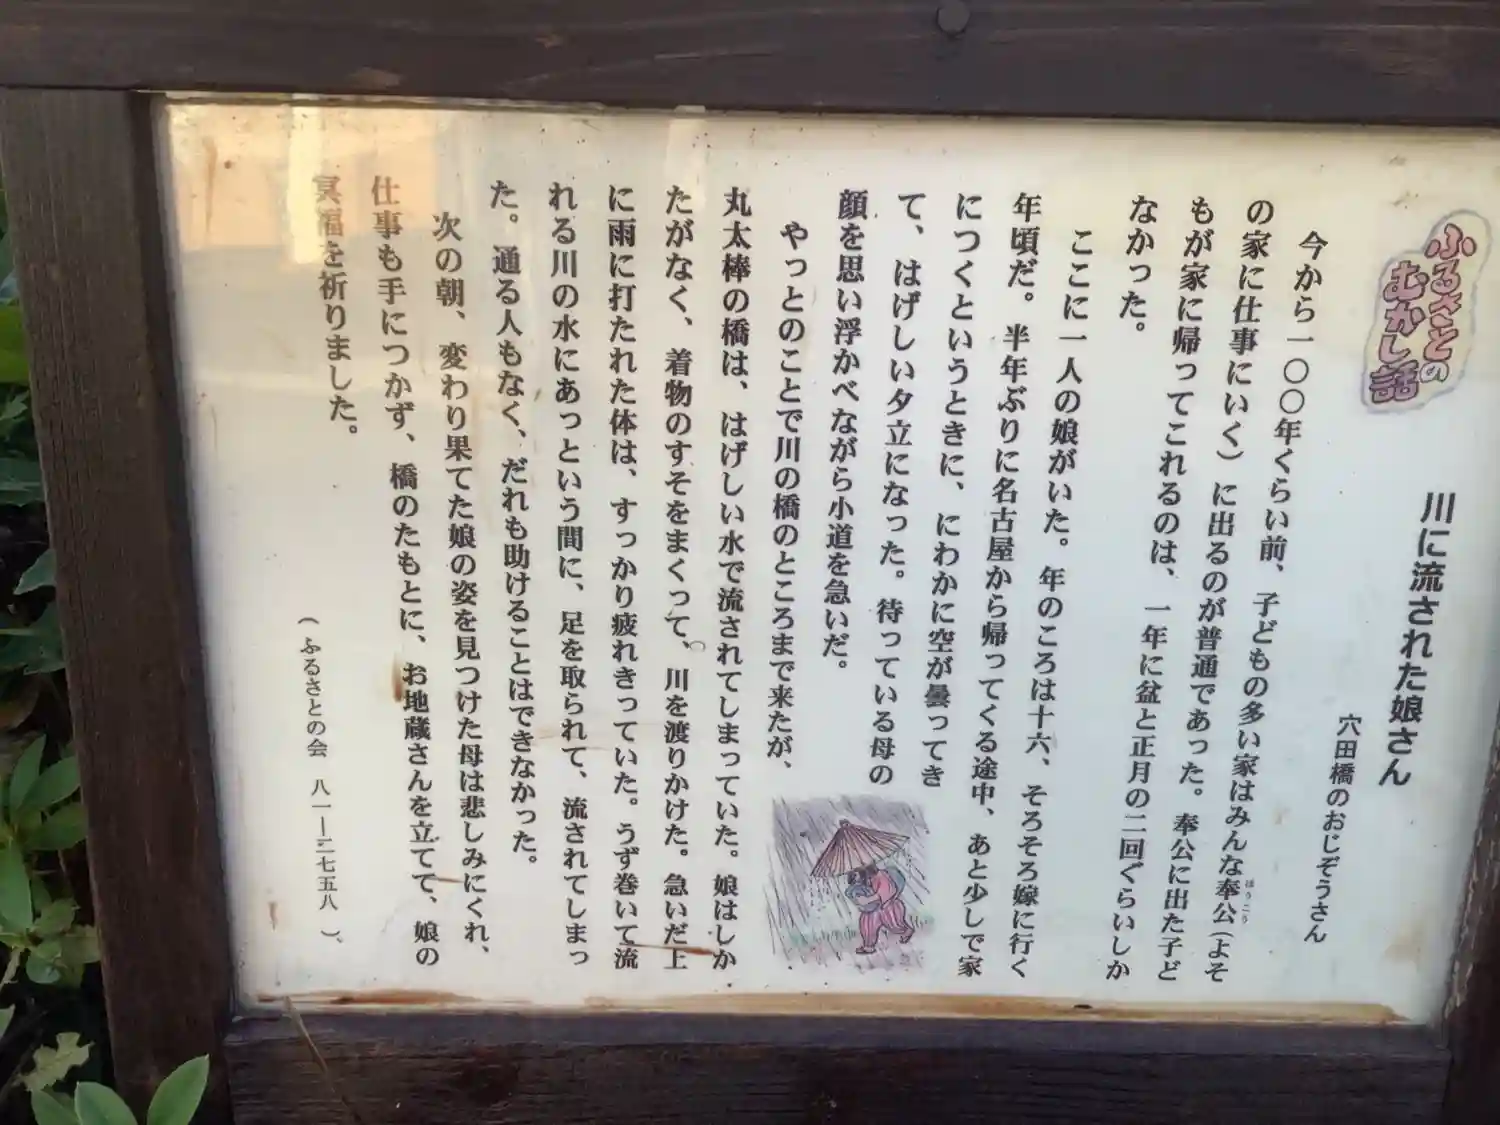 ふるさとの
むかし話
川に流された娘さん
穴田橋のおじぞうさん
今から一〇〇年くらい前、子どもの多い家はみんな奉公（よそ
ほうこう
の家に仕事にいく）に出るのが普通であった。奉公に出た子ど
もが家に帰ってこれるのは、一年に盆と正月の二回ぐらいしか
なかった。
ここに一人の娘がいた。年のころは十六、そろそろ嫁に行く
年頃だ。半年ぶりに名古屋から帰ってくる途中、あと少しで家
につくというときに、にわかに空が曇ってき
て、はげしい夕立になった。待っている母の
顔を思い浮かべながら小道を急いだ。
やっとのことで川の橋のところまで来たが、
丸太棒の橋は、はげしい水で流されてしまっていた。娘はしか
たがなく、着物のすそをまくって、川を渡りかけた。急いだ上
に雨に打たれた体は、すっかり疲れきっていた。うず巻いて流
れる川の水にあっという間に、足を取られて、流されてしまっ
た。通る人もなく、だれも助けることはできなかった。
次の朝、変わり果てた娘の姿を見つけた母は悲しみにくれ、
仕事も手につかず、橋のたもとに、お地蔵さんを立てて、娘の
冥福を祈りました。
（ふるさとの会　八一ー二七五八）